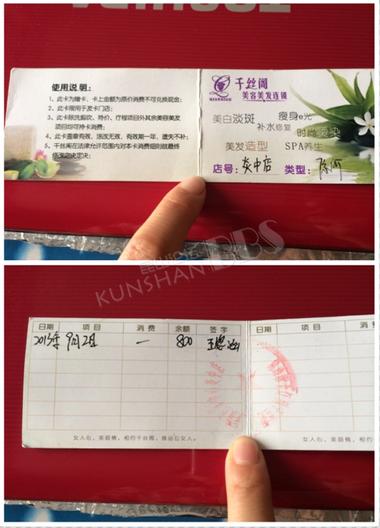 使用说明：
1、此卡为赠卡，卡上金额为原价消费不可兑换现金；
2、此卡限用于发卡门店；
3、此卡除洗剪吹、特价、疗程项目外其余美容美发
项目均可持卡消费；
4、此卡盖章有效，涂改无效，有效期一年，遗失不补；
5、千丝阁在法律允许范围内对本卡消费细则做最终
千丝阁
美容美发连锁
美白淡斑
瘦身e光
补水修复
时尚烫染
美发造型
SPA养生
店号：
中店
类型：
KUNSHAN BBS
日期 项目 消费 余额 签字
2015年9月2日 一 800
女人心，美丽情，相约千丝阁，做品位女人。
日期 项目 消费
女人心，美丽情，相约千